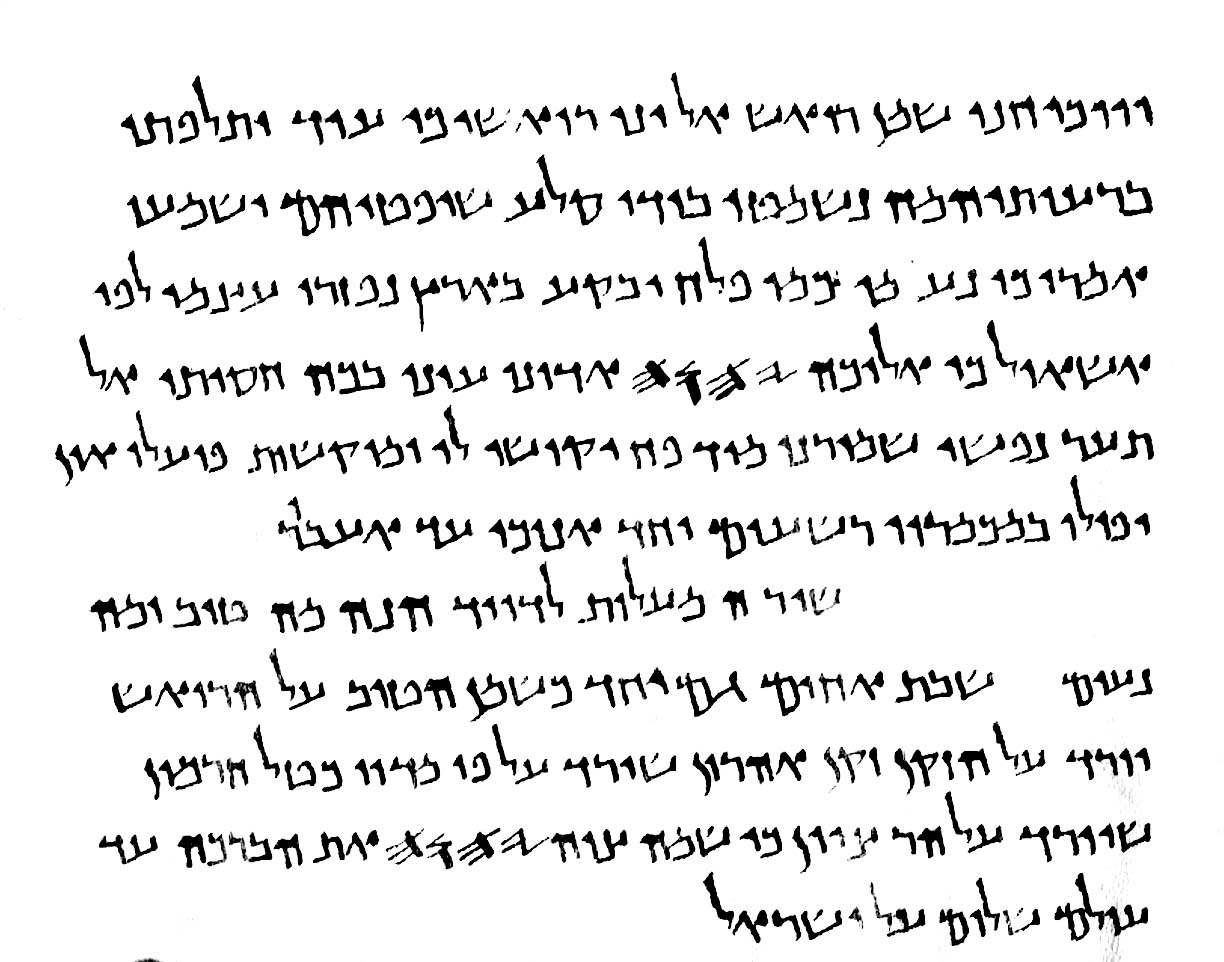 ויוכיחני שמן רואש אל יני רואשי כי עוד ותלפתי
ברעותיהמה נשמטו בידי סלע שופטיהם ושמעו
אמרי כי נעמו כמו פלח ובקע בארץ נפזרו עצמי לפי
אשאול כי אליכה 𐤉𐤄𐤅𐤄 אדוני עיני בכה חסיתי אל
תער נפשי שמורני מיד פח יקושו לי ומוקשות פועלי און
יפולו במכמריו רשעים יחד אנוכי עד אעבר
שיר המעלות לדויד הנה מה טוב ומה
נעים שבת אחים גם יחד כשמן הטוב על הרואש
יורד על הזקן זקן אהרון שירד על פי מדיו כטל חרמון
שיורד על הר ציון כי שמה צוה 𐤉𐤄𐤅𐤄 את הברכה עד
עולם שלום על ישראל